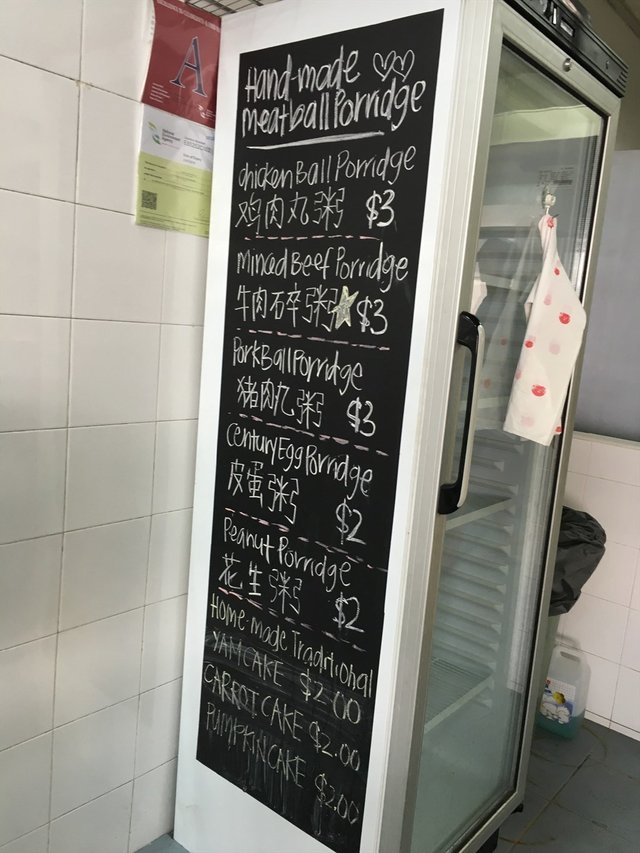 A
Hand-made
meatball Porridge
chicken Ball Porridge
鸡肉丸粥 $3
Minced Beef Porridge
牛肉碎粥 $3
Pork Ball Porridge
猪肉丸粥 $3
Century Egg Porridge
皮蛋粥 $2
Peanut Porridge
花生粥 $2
Home-made Traditional
YAM CAKE $2.00
CARROT CAKE $2.00
PUMPKIN CAKE $2.00